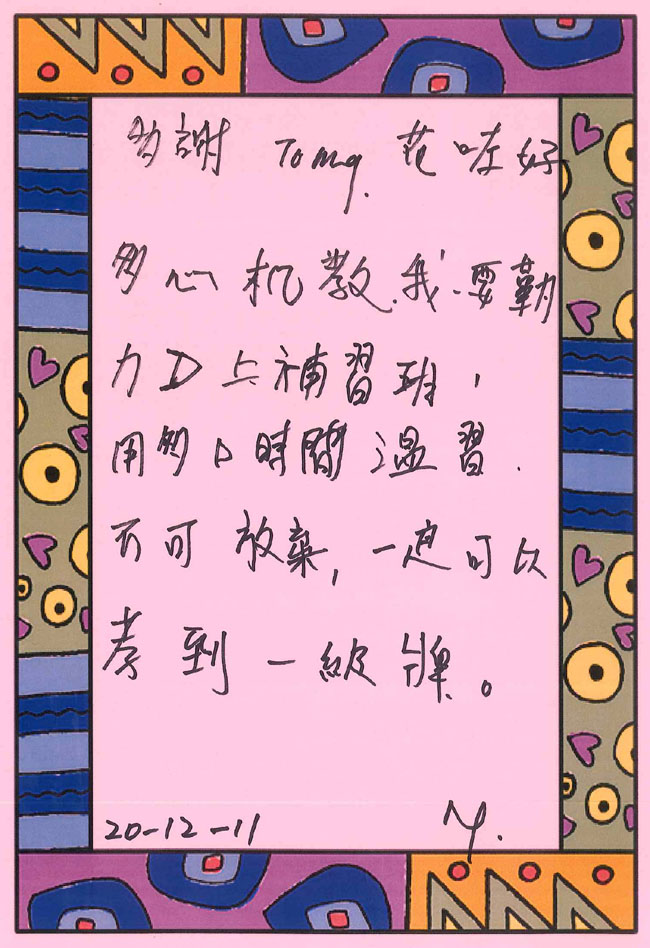 多謝 Tomy. 花咗好
多心机教.我.要勤
力D上補習班，
用多D時間温習.
不可放棄, 一定可以
考到一級牌。
20-12-11